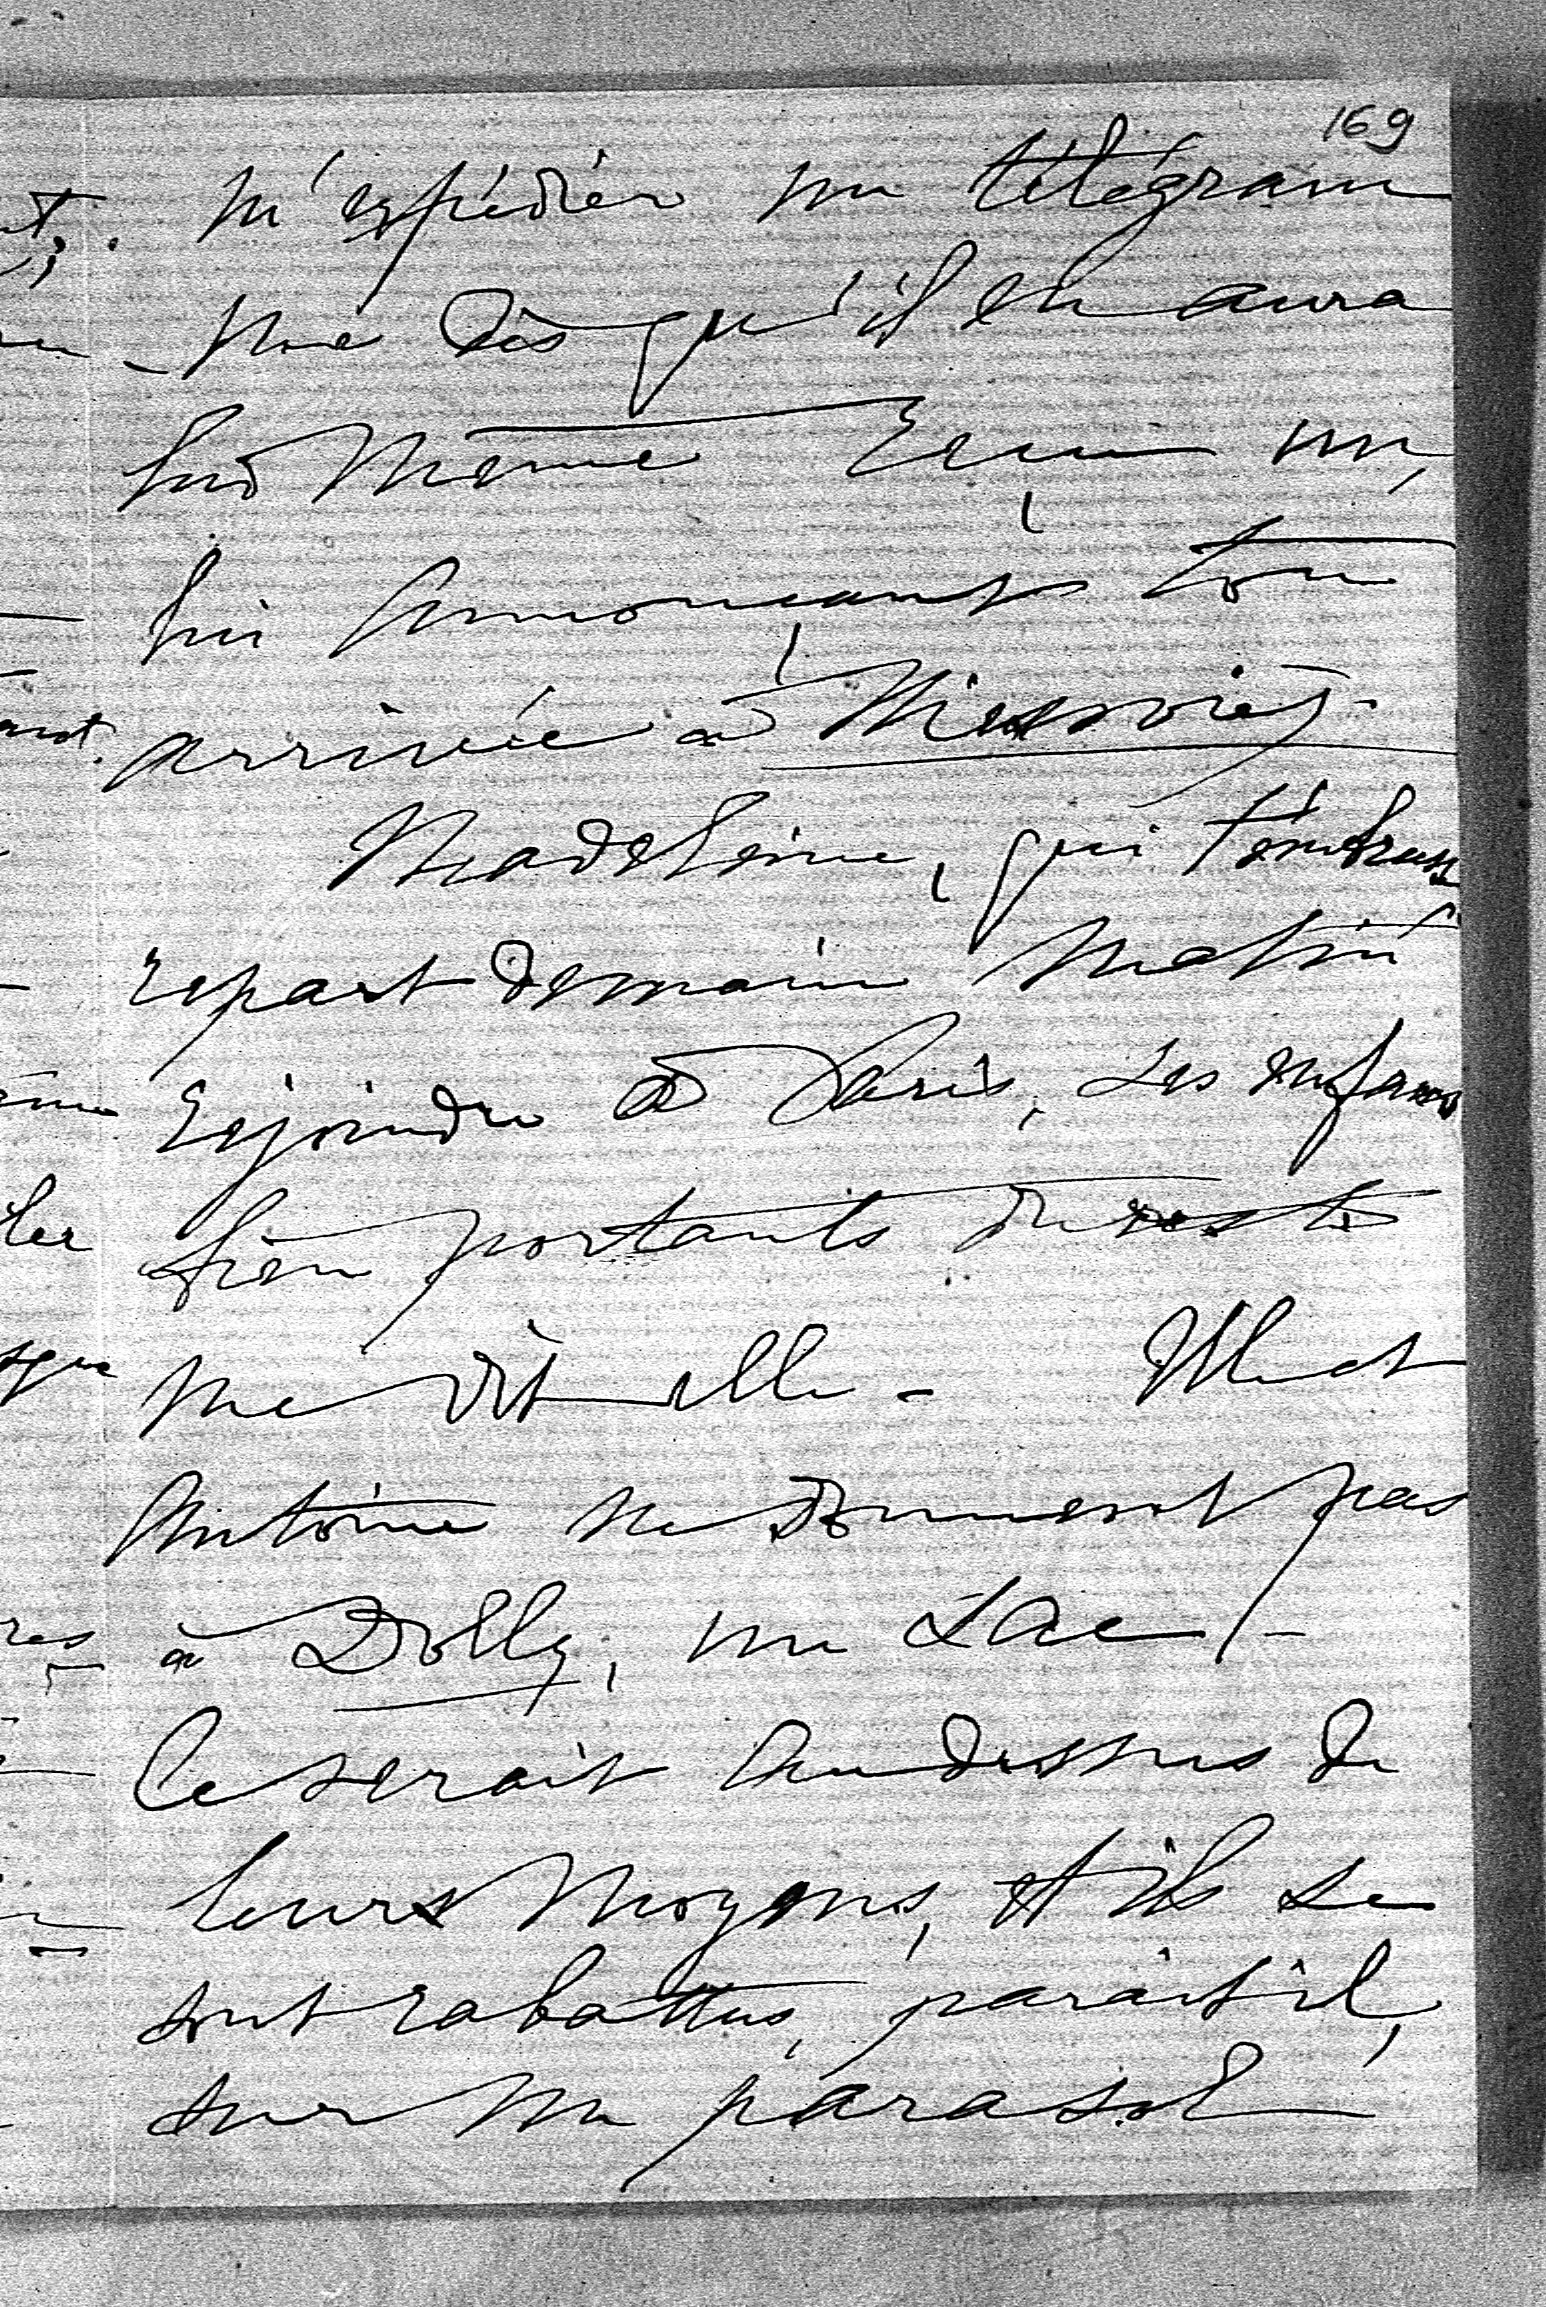 169
m'expédier un télégram
me dès qu'il en aura
lui même reçu un,
lui annonçant ton
arrivée à
Madeleine, qui t'embrasse
repart demain matin
rejoindre à Paris, ses enfants
bien portants du reste
me dit-elle - et
Antoine ne donnent pas
à Dolly, un sac -
Ce serait au dessus de
leurs moyens, et ils se
sont rabattus, paraît il,
sur un parasol